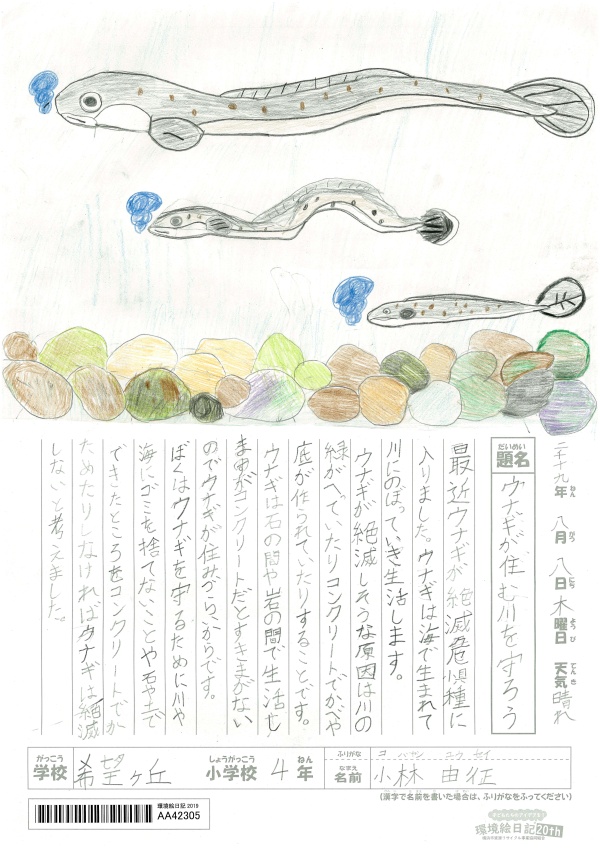 二十九年 八月 八日 木曜日 天気 晴れ
ねん がつ にち ようび てんき
だいめい
題名 ウナギが住む川を守ろう
最近ウナギが絶滅危惧種に
入りました。ウナギは海で生まれて
川にのぼっていき生活します。
ウナギが絶滅しそうな原因は川の
緑がへっていたりコンクリートでかべや
底が作られていたりすることです。
ウナギは石の間や岩の間で生活し
ますがコンクリートだとすきまがない
のでウナギが住みづらいからです。
ぼくはウナギを守るために川や
海にゴミを捨てないことや石や土で
できたところをコンクリートでか
ためたりしなければウナギは絶滅
しないと考えました。
がっこう しょうがっこう ねん
学校 希望ヶ丘 小学校 4年
ふりがな コ バヤシ ユウ セイ
なまえ
名前 小林 由征
(漢字で名前を書いた場合は、ふりがなをふってください)
環境絵日記 2019
AA42305
環境絵日記20th